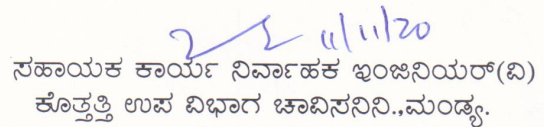 11/11/20
ಸಹಾಯಕ ಕಾರ್ಯ ನಿರ್ವಾಹಕ ಇಂಜಿನಿಯರ್(ವಿ)
ಕೊತ್ತತ್ತಿ ಉಪ ವಿಭಾಗ ಚಾವಿಸನಿನಿ.,ಮಂಡ್ಯ.